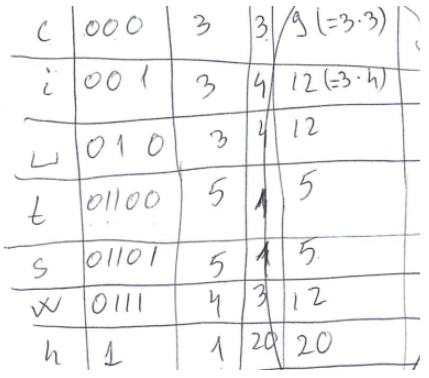 c 000 3 3 9 (=3·3)
i 001 3 4 12 (=3·4)
␣ 010 3 4 12
t 01100 5 1 5
s 01101 5 1 5
w 0111 4 3 12
h 1 1 20 20